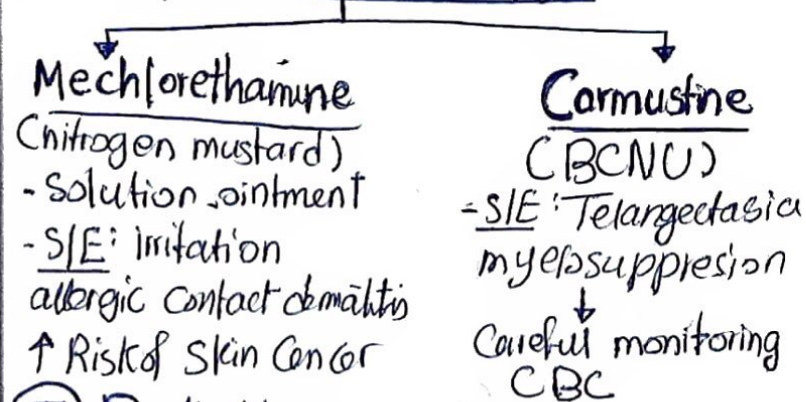 Mechlorethamine
(nitrogen mustard)
- Solution, ointment
- S/E: irritation
allergic contact dermatitis
↑ Risk of Skin Cancer
Carmustine
(BCNU)
- S/E: Telangectasia
myelosuppresion
↓
Careful monitoring
CBC